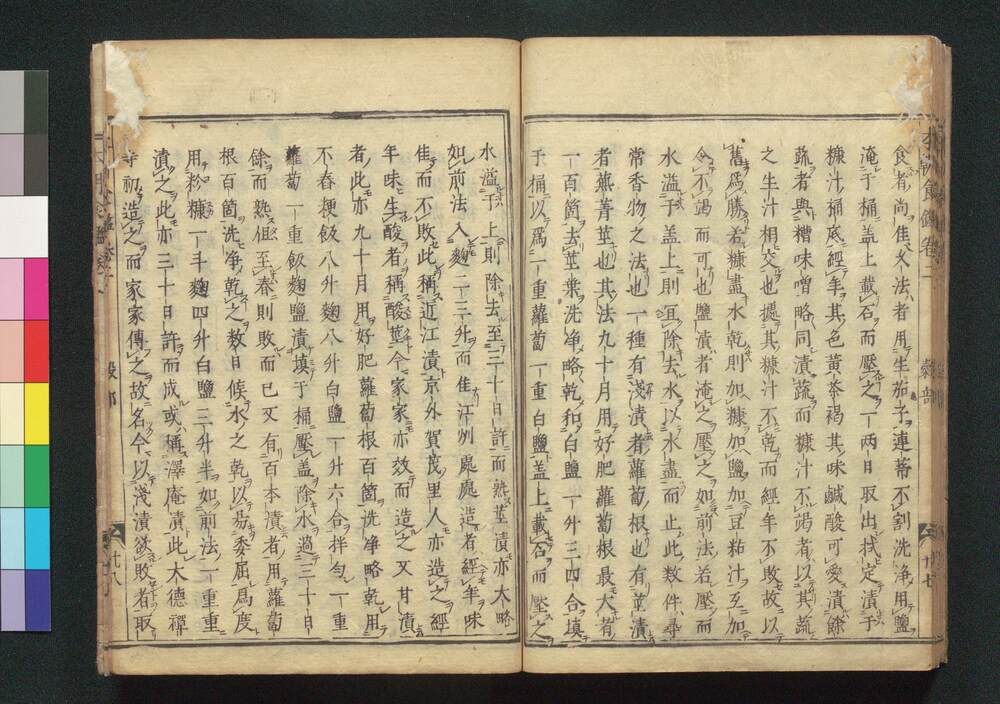 食者尚佳又法者用生茄子連蒂不割洗浄用鹽
淹于桶盖上載石而壓之一両日取出拭定漬于
糠汁桶底經年其色黄茶褐其味鹹酸可愛漬餘
蔬者與糟味噌略同漬蔬而糠汁不竭者以其蔬
之生汁相交也攄其糠汁不乾而經年不敗故以
舊為勝若糠盡水乾則加糠加鹽加豆粘汁互加
令不竭而可也鹽漬者淹之壓之如前法若壓而
水溢于盖上則宜除去水以水盡而止此数件尋
常香物之法也一種有淺漬者蘿蔔根也有莖漬
者蕪菁莖也其法九十月用好肥蘿蔔根最大者
一百箇去莖葉洗浄略乾和白鹽一升三四合填
于桶以為一重蘿蔔一重白鹽盖上載石而壓之
水溢于上則除去至三十日許而熟莖漬亦大略
如前法入麴一二三升而佳汗州處處造者經年味
佳而不敗此稱近江漬京外賀茂里人亦造之經
年味生酸者稱酸莖今家家亦效而造之又甘漬
者此亦九十月用好肥蘿蔔根百箇洗浄略乾用
不舂粳飯八升麴八升白鹽一升六合拌匀一重
蘿蔔一重飯麴鹽漬填于桶壓盖除水過三十日
餘而熟但至春則敗而已又有百本漬者用蘿蔔
根百箇洗浄乾之数日候水之乾以易委屈為度
用粉糠一斗麴四升白鹽三升半如前法一重重
漬之此亦三十日許而成或稱澤庵漬此大德禪
寺初造之而家家傳之故名今以淺漬欲敗者取
巻二
穀部
廿七
廿八